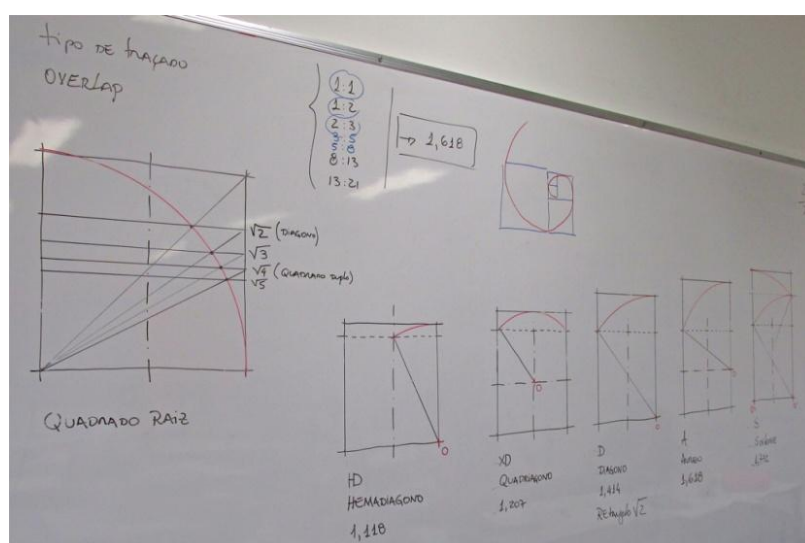 tipo DE TRAÇADO
OVERLAP
1:1
1:2
2:3
3:5
5:8
8:13
13:21
→ 1,618
√2 (DIAGONO)
√3
√4 (QUADRADO Duplo)
√5
QUADRADO RAIZ
O
HD
HEMADIAGONO
1,118
O
XD
QUADRIAGONO
1,207
D
DIAGONO
1,414
REtângulo √2
A
1,618
S